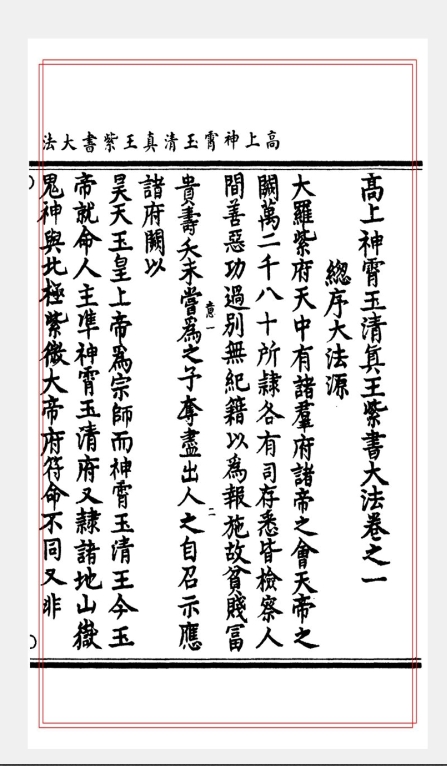 高上神霄玉清真王紫書大法
高上神霄玉清真王紫書大法卷之一
總序大法源
大羅紫府天中有諸羣府諸帝之會天帝之
闕萬二千八十所隷各有司存悉皆檢察人
間善惡功過別無紀籍以爲報施故貧賤冨
貴壽夭未嘗爲之予奪盡出人之自召示應
諸府闕以
昊天玉皇上帝爲宗師而神霄玉清王今玉
帝就命人主準神霄玉清府又隷諸地山嶽
鬼神與北極紫微大帝府符命不同又非
一
二